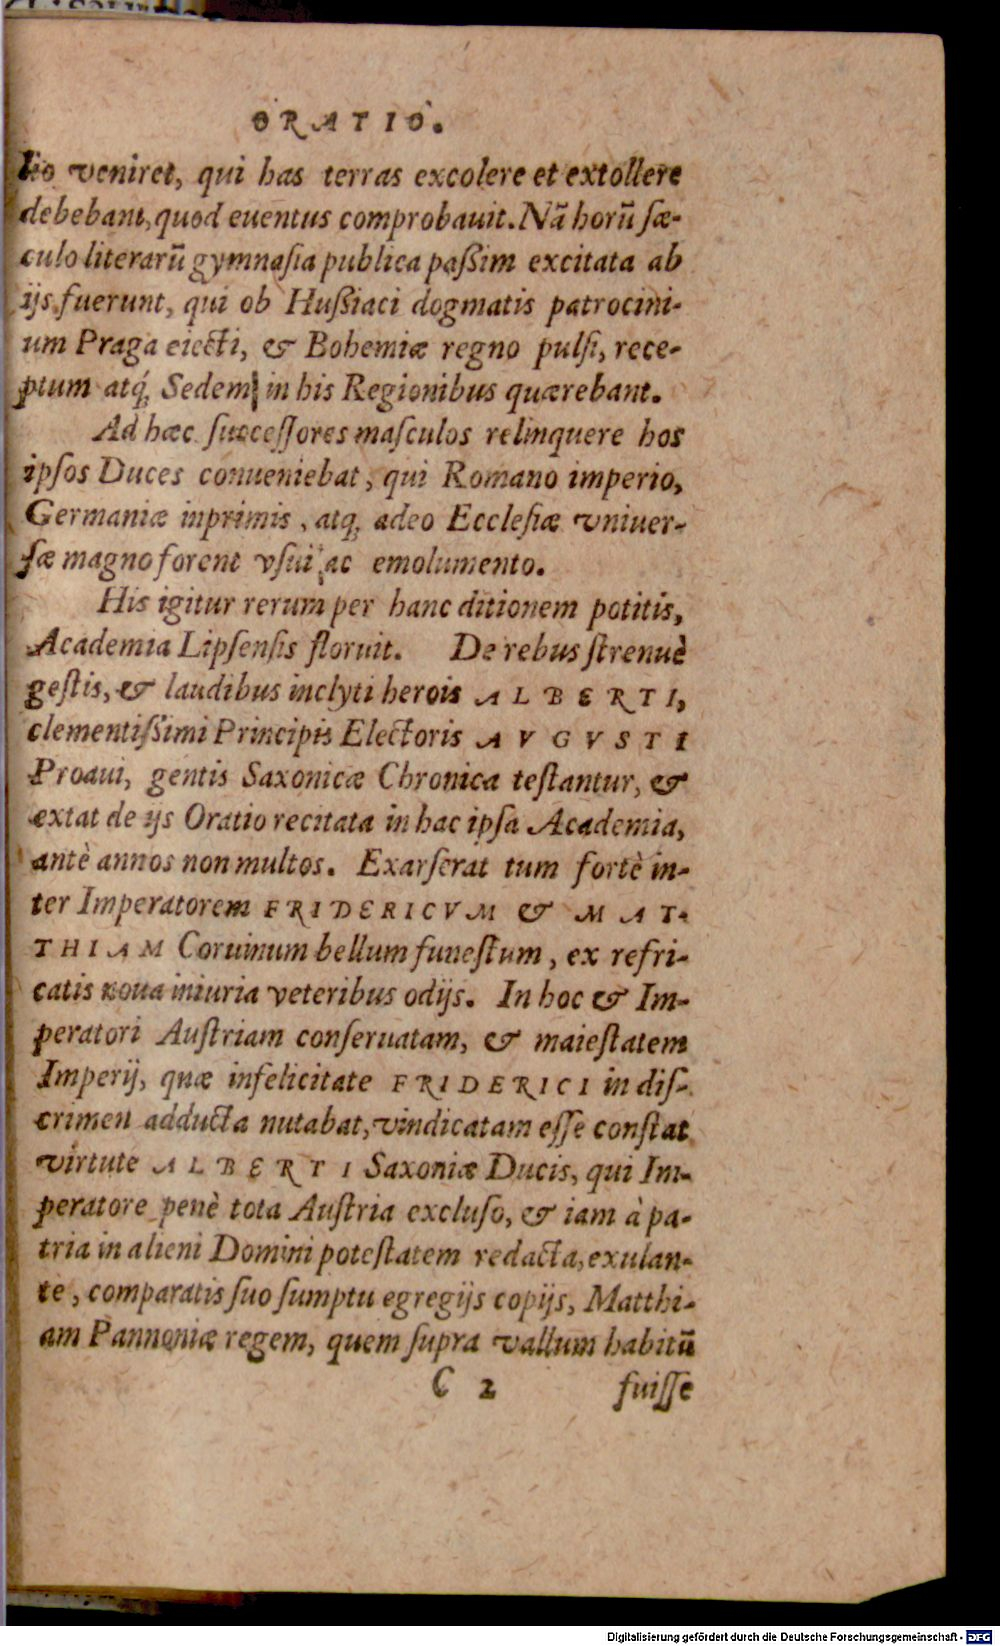 ORATIO.
lio veniret, qui has terras excolere et extollere
debebant, quod euentus comprobauit. Nã horũ sæ-
culo literarũ gymnasia publica paßim excitata ab
ijs fuerunt, qui ob Hußiaci dogmatis patrocini-
um Praga eiecti, & Bohemiæ regno pulsi, rece-
ptum atq́; Sedem in his Regionibus quærebant.
Ad hæc successores masculos relinquere hos
ipsos Duces conueniebat, qui Romano imperio,
Germaniæ inprimis, atq; adeo Ecclesiæ vniuer-
sæ magno forent vsui ac emolumento.
His igitur rerum per hanc ditionem potitis,
Academia Lipsensis floruit. De rebus strenuè
gestis, & laudibus inclyti herois ALBERTI,
clementißimi Principis Electoris AVGVSTI
Proaui, gentis Saxonicæ Chronica testantur, &
extat de ijs Oratio recitata in hac ipsa Academia,
antè annos non multos. Exarserat tum fortè in-
ter Imperatorem FRIDERICVM & MAT-
THIAM Coruinum bellum funestum, ex refri-
catis noua iniuria veteribus odijs. In hoc & Im-
peratori Austriam conseruatam, & maiestatem
Imperij, quæ infelicitate FRIDERICI in dis-
crimen adducta nutabat, vindicatam esse constat
virtute ALBERTI Saxoniæ Ducis, qui Im-
peratore penè tota Austria excluso, & iam à pa-
tria in alieni Domini potestatem redacta, exulan-
te, comparatis suo sumptu egregijs copijs, Matthi-
am Pannoniæ regem, quem supra vallum habitũ
C 2 fuisse
Digitalisierung gefördert durch die Deutsche Forschungsgemeinschaft - DFG